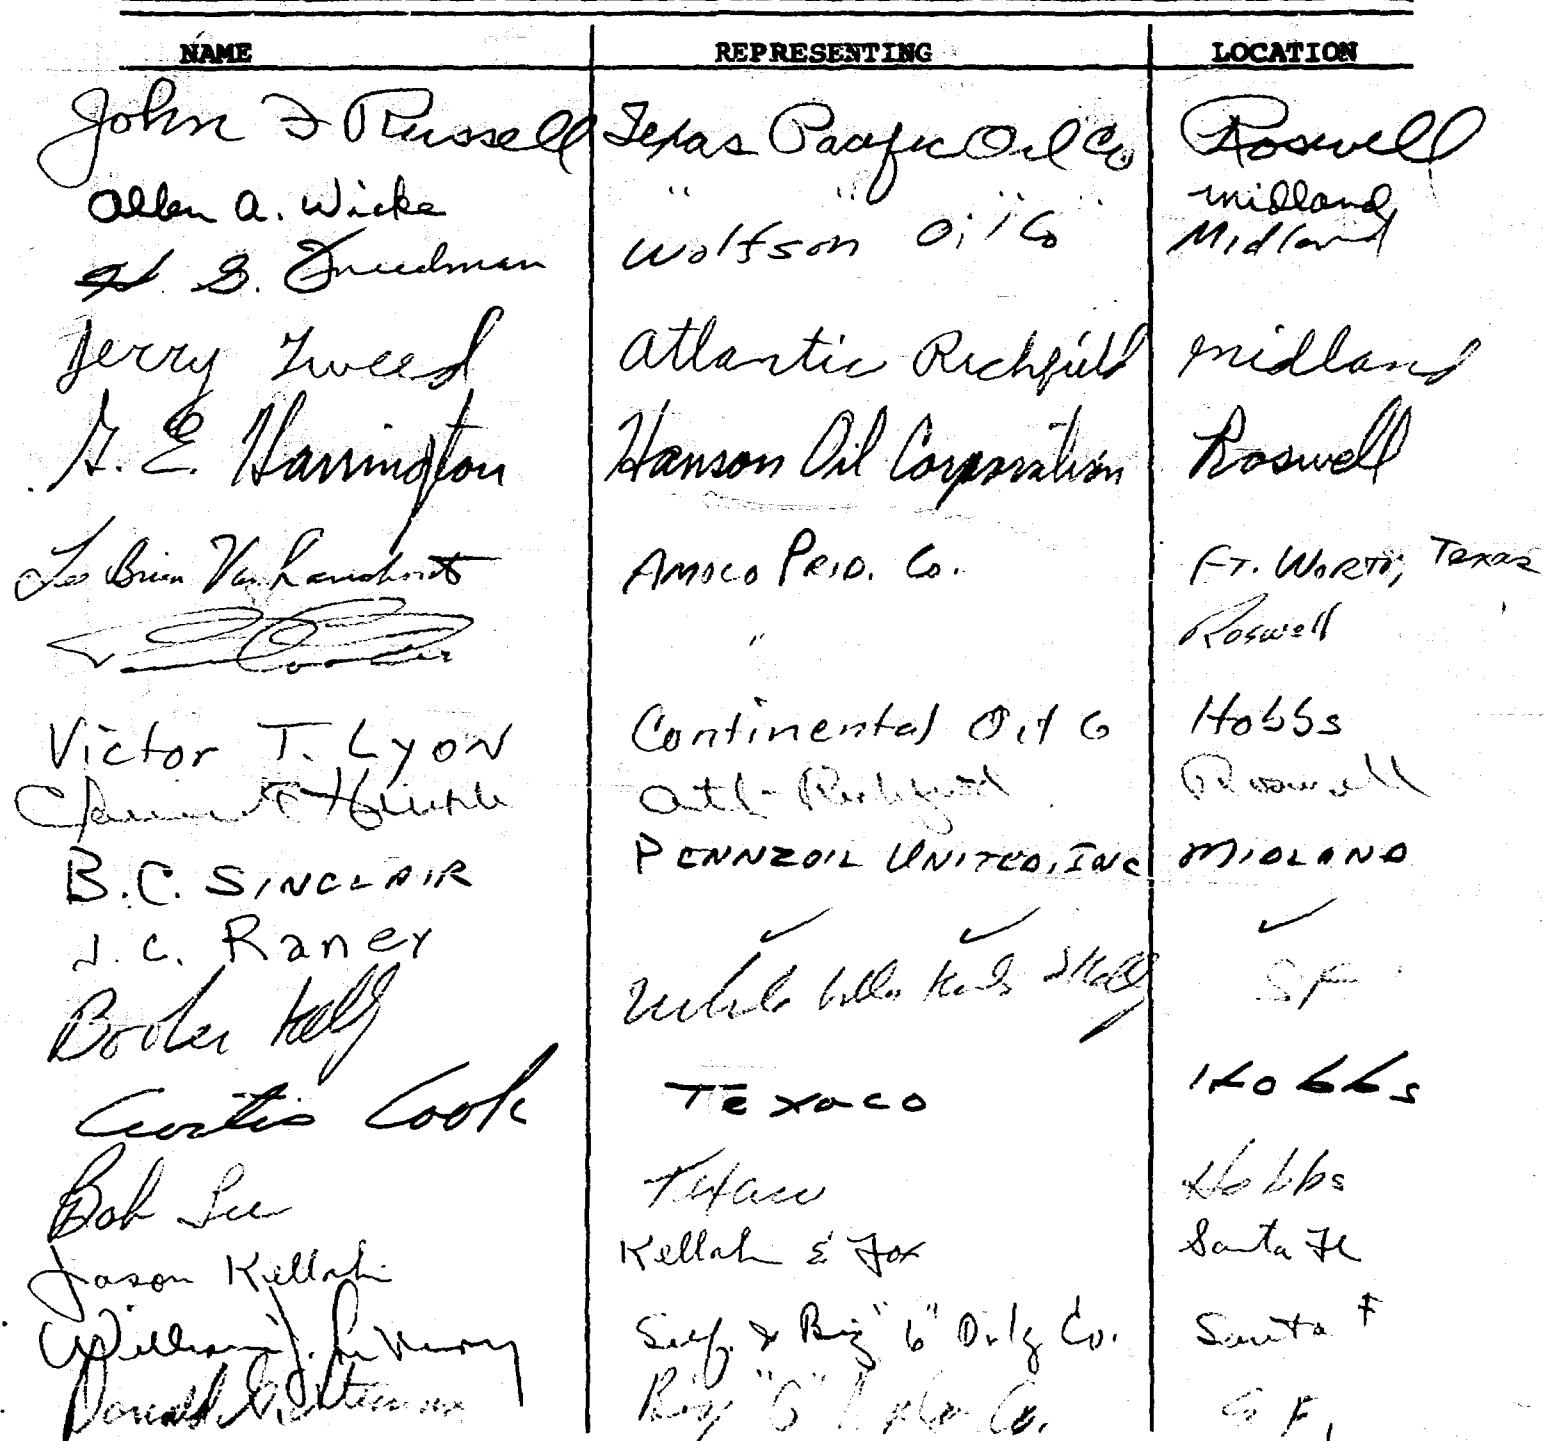 NAME REPRESENTING LOCATION
John F Russell Texas Pacific Oil Co Roswell
Allen A. Wicke " " " " Midland
H. G. Freedman Wolfson Oil Co Midland
Jerry Tweed Atlantic Richfield Midland
G. E. Harrington Hanson Oil Corporation Roswell
Amoco Prod. Co. Ft. Worth, Texas
" Roswell
Victor T. Lyon Continental Oil Co Hobbs
Atl-Richfield Roswell
B.C. SINCLAIR PENNZOIL UNITED, INC MIDLAND
J. C. Raney ✓ ✓ ✓
Booker Kelly White Koch Kelly SF
Curtis Cook Texaco Hobbs
Bob Lee Texaco Hobbs
Jason Kellahin Kellahin & Fox Santa Fe
William Self & Big "6" Drlg Co. Santa F
Donald G. Big "6" Co. S F,